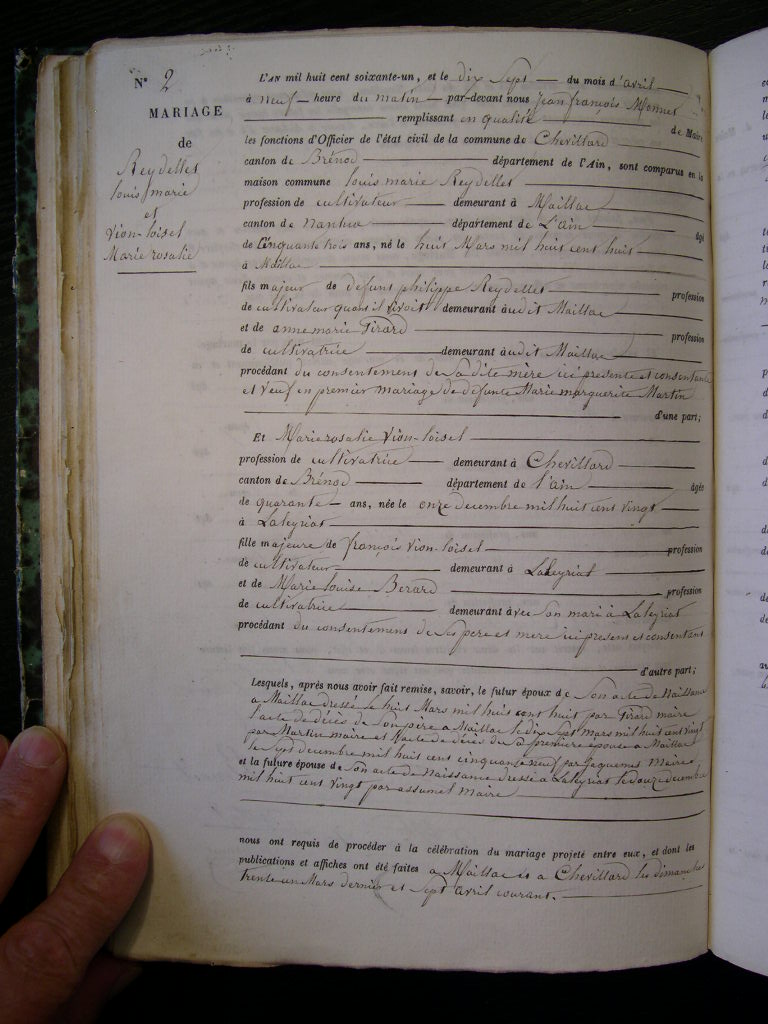 N° 2
MARIAGE
de
Reydellet
louis marie
et
Vion-loisel
Marie rosalie
L'AN mil huit cent soixante-un, et le dix Sept du mois d'avril
à neuf heure du matin par-devant nous Jean françois Monnet
remplissant en qualité de Maire
les fonctions d'Officier de l'état civil de la commune de Chevillard
canton de Brénod département de l'Ain, sont comparus en la
maison commune louis marie Reydellet
profession de cultivateur demeurant à Maillac
canton de Nantua département de L'ain âgé
de Cinquante trois ans, né le huit Mars mil huit cent huit
à Maillac
fils majeur de defunt philippe Reydellet profession
de cultivateur quand il vivoit demeurant audit Maillac
et de anne marie Girard profession
de cultivatrice demeurant audit Maillac
procédant du consentement de Sa dite mère ici presente et consentante
et Veuf en premier mariage de defunte Marie marguerite Martin
d'une part;
Et Marie rosalie Vion-loisel
profession de cultivatrice demeurant à Chevillard
canton de Brénod département de l'ain âgée
de quarante ans, née le onze decembre mil huit cent vingt
à Laleyriat
fille majeure de françois Vion-loisel profession
de cultivateur demeurant à Laleyriat
et de Marie louise Berard profession
de cultivatrice demeurant avec Son mari à Laleyriat
procédant du consentement de Ses pere et mere ici presens et consentans
d'autre part;
Lesquels, après nous avoir fait remise, savoir, le futur époux de Son acte de Naissance
a Maillac dressé le huit Mars mil huit cent huit par Girard maire
l'acte de décès de Son père a Maillac le dix Sept Mars mil huit cent vingt
par Martin maire et l'acte de décès de Sa première épouse a Maillac
le Sept decembre mil huit cent cinquante neuf par Jaquemet Maire
et la future épouse de Son acte de Naissance dressé a Laleyriat le douze decembre
mil huit cent Vingt par assumel maire
nous ont requis de procéder à la célébration du mariage projeté entre eux, et dont les
publications et affiches ont été faites a Maillac et a Chevillard les dimanches
trente un Mars dernier et Sept avril courant.